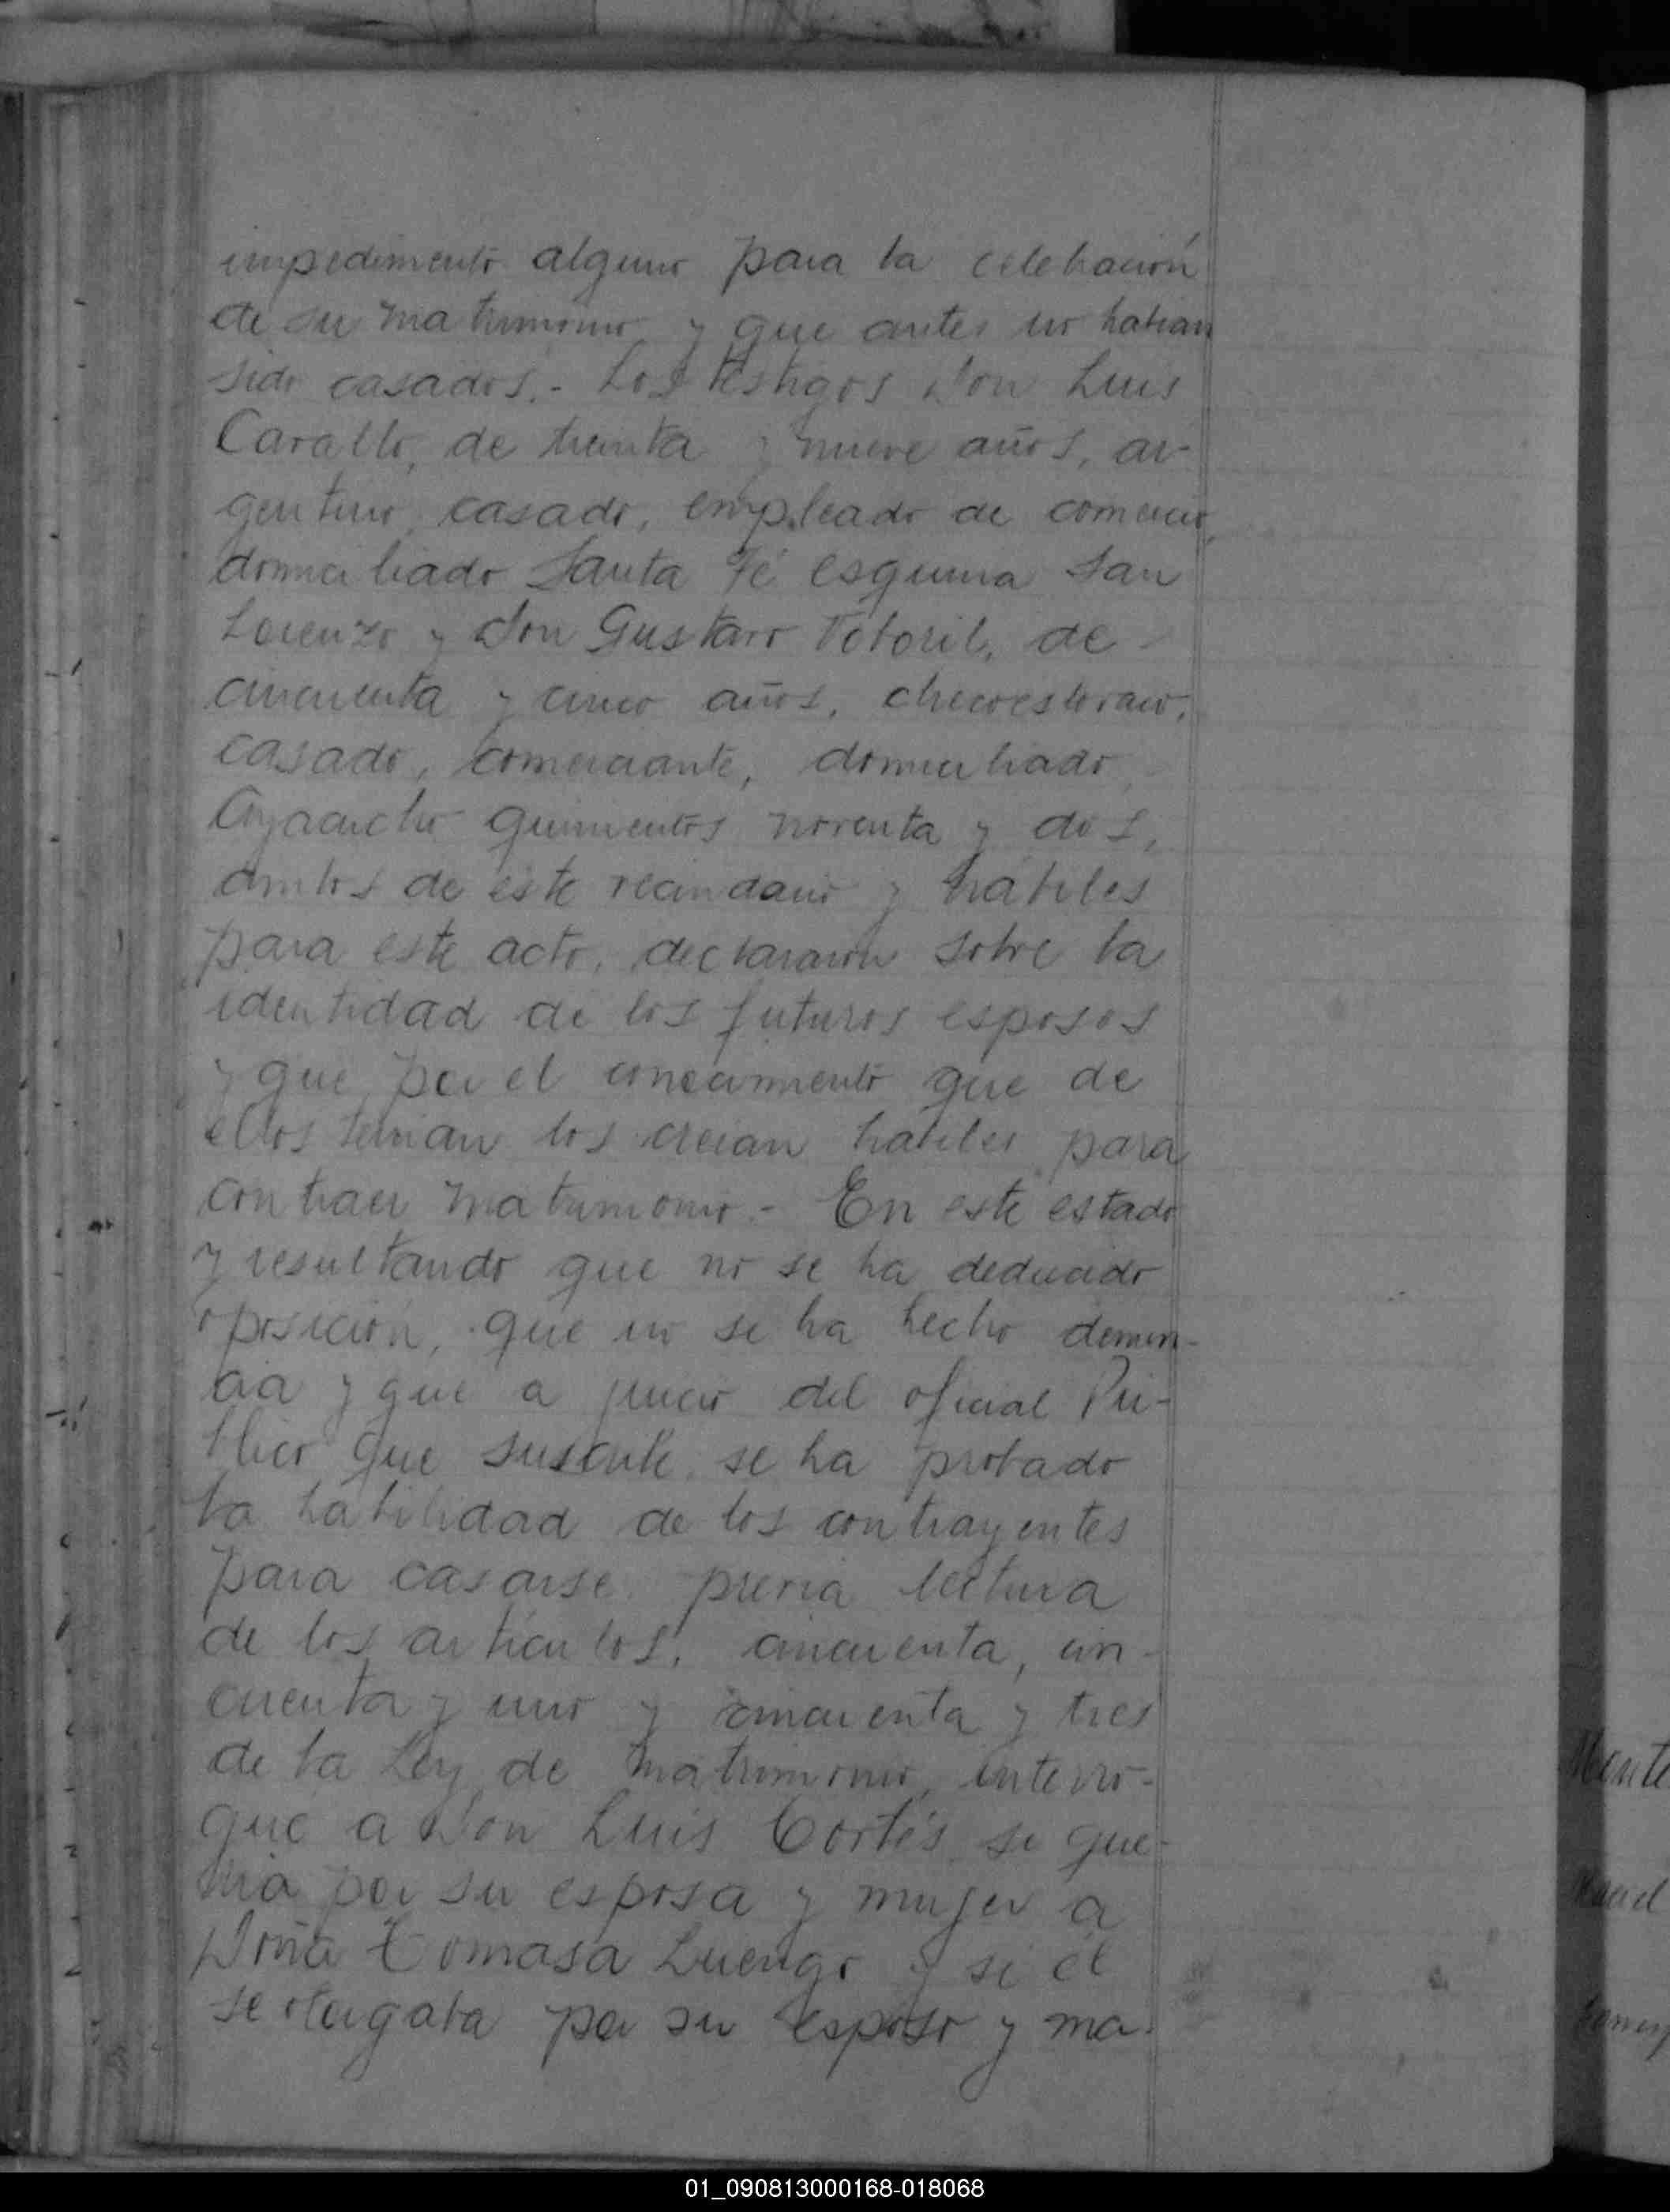 impedimento alguno para la celebración
de su matrimonio y que antes no habian
sido casados.- Los testigos Don Luis
Carallo, de treinta y nueve años, ar-
gentino, casado, empleado de comercio,
domiciliado Santa Fé esquina San
Lorenzo y Don Gustavo Totoril, de
cincuenta y cinco años, checoeslovaco,
casado, comerciante, domiciliado
Ayacucho quinientos noventa y dos,
ambos de este vecindario y hábiles
para este acto, declararon sobre la
identidad de los futuros esposos
y que por el conocimiento que de
ellos tenian los creian habiles para
contraer matrimonio.- En este estado
y resultando que no se ha deducido
oposición, que no se ha hecho denun-
cia y que a juicio del oficial Pú-
blico que suscribe, se ha probado
la habilidad de los contrayentes
para casarse, previa lectura
de los artículos, cincuenta, cin-
cuenta y uno y cincuenta y tres
de la Ley de matrimonio, interro-
gué a Don Luis Cortés si que-
ria por su esposa y mujer a
Doña Tomasa Luengo y si él
se otorgaba por su esposo y ma-
Mente
01_090813000168-018068